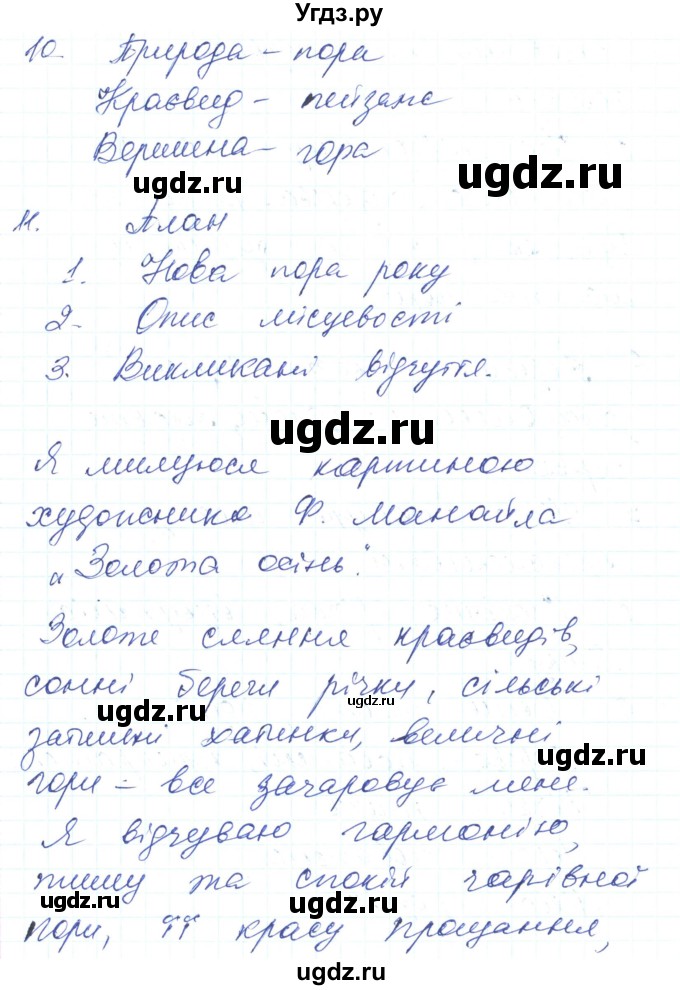 Угдз.ру
10 Природа – пора
Краєвид – пейзаж
Вершина – гора
ugdz.ru
ugdz.ru
11. План
1. Нова пора року
2. Опис місцевості
3. Викликані відчуття.
ugdz.ru
Я милуюся картиною
художника Ф. Манайла
„Золота осінь".
Золоте сяяння краєвидів,
сонні береги річки, сільські
ugdz.ru
ugdz.ru
затишні хатинки, величні
ugdz.ru
гори – все зачаровує мене.
Я відчуваю гармонію,
тишу та спокій чарівної
ugdz.ru
ugdz.ru
пори, її красу прощання,
ugdz.ru